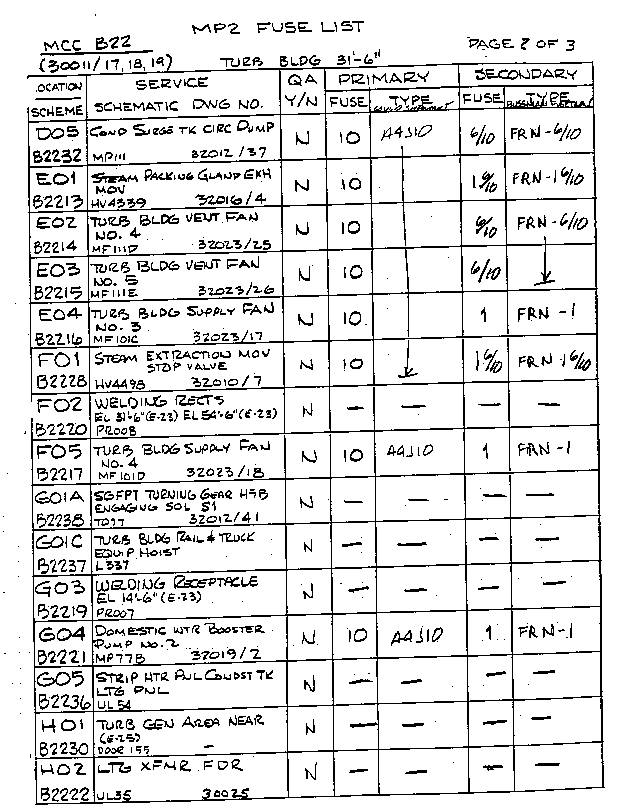 MP2 FUSE LIST
MCC B22
PAGE 2 OF 3
(30011/17,18,19) TURB BLDG 31'-6"
LOCATION SERVICE QA PRIMARY SECONDARY
SCHEME SCHEMATIC DWG NO. Y/N FUSE TYPE FUSE TYPE
D05 COND SURGE TK CIRC PUMP N 10 A4J10 6/10 FRN-6/10
B2232 MP111 32012/37
E01 STEAM PACKING GLAND EXH N 10 1 6/10 FRN-1 6/10
MOV
B2213 HV4339 32016/4
E02 TURB BLDG VENT FAN N 10 6/10 FRN-6/10
NO. 4
B2214 MF111D 32023/25
E03 TURB BLDG VENT FAN N 10 6/10
NO. 5
B2215 MF111E 32023/26
E04 TURB BLDG SUPPLY FAN N 10 1 FRN-1
NO. 3
B2216 MF101C 32023/17
F01 STEAM EXTRACTION MOV N 10 1 6/10 FRN-1 6/10
STOP VALVE
B2228 HV4498 32010/7
F02 WELDING RECTS N — — — —
EL 31'-6" (E-23) EL 54'-6" (E-23)
B2220 PR008
F05 TURB BLDG SUPPLY FAN N 10 A4J10 1 FRN-1
NO. 4
B2217 MF101D 32023/18
G01A SGFPT TURNING GEAR HSB N — — — —
ENGAGING SOL S1
B2238 TD77 32012/41
G01C TURB BLDG RAIL & TRUCK N — — — —
EQUIP HOIST
B2237 L337
G03 WELDING RECEPTACLE N — — — —
EL 14'-6" (E-23)
B2219 PR007
G04 DOMESTIC WTR BOOSTER N 10 A4J10 1 FRN-1
PUMP NO. 2
B2221 MP77B 32019/2
G05 STRIP HTR PNL CONDST TK N — — — —
LTG PNL
B2236 UL54
H01 TURB GEN AREA NEAR N — — — —
(E-25)
B2230 DOOR 155 —
H02 LTG XFMR FDR N — — — —
B2222 UL35 30025